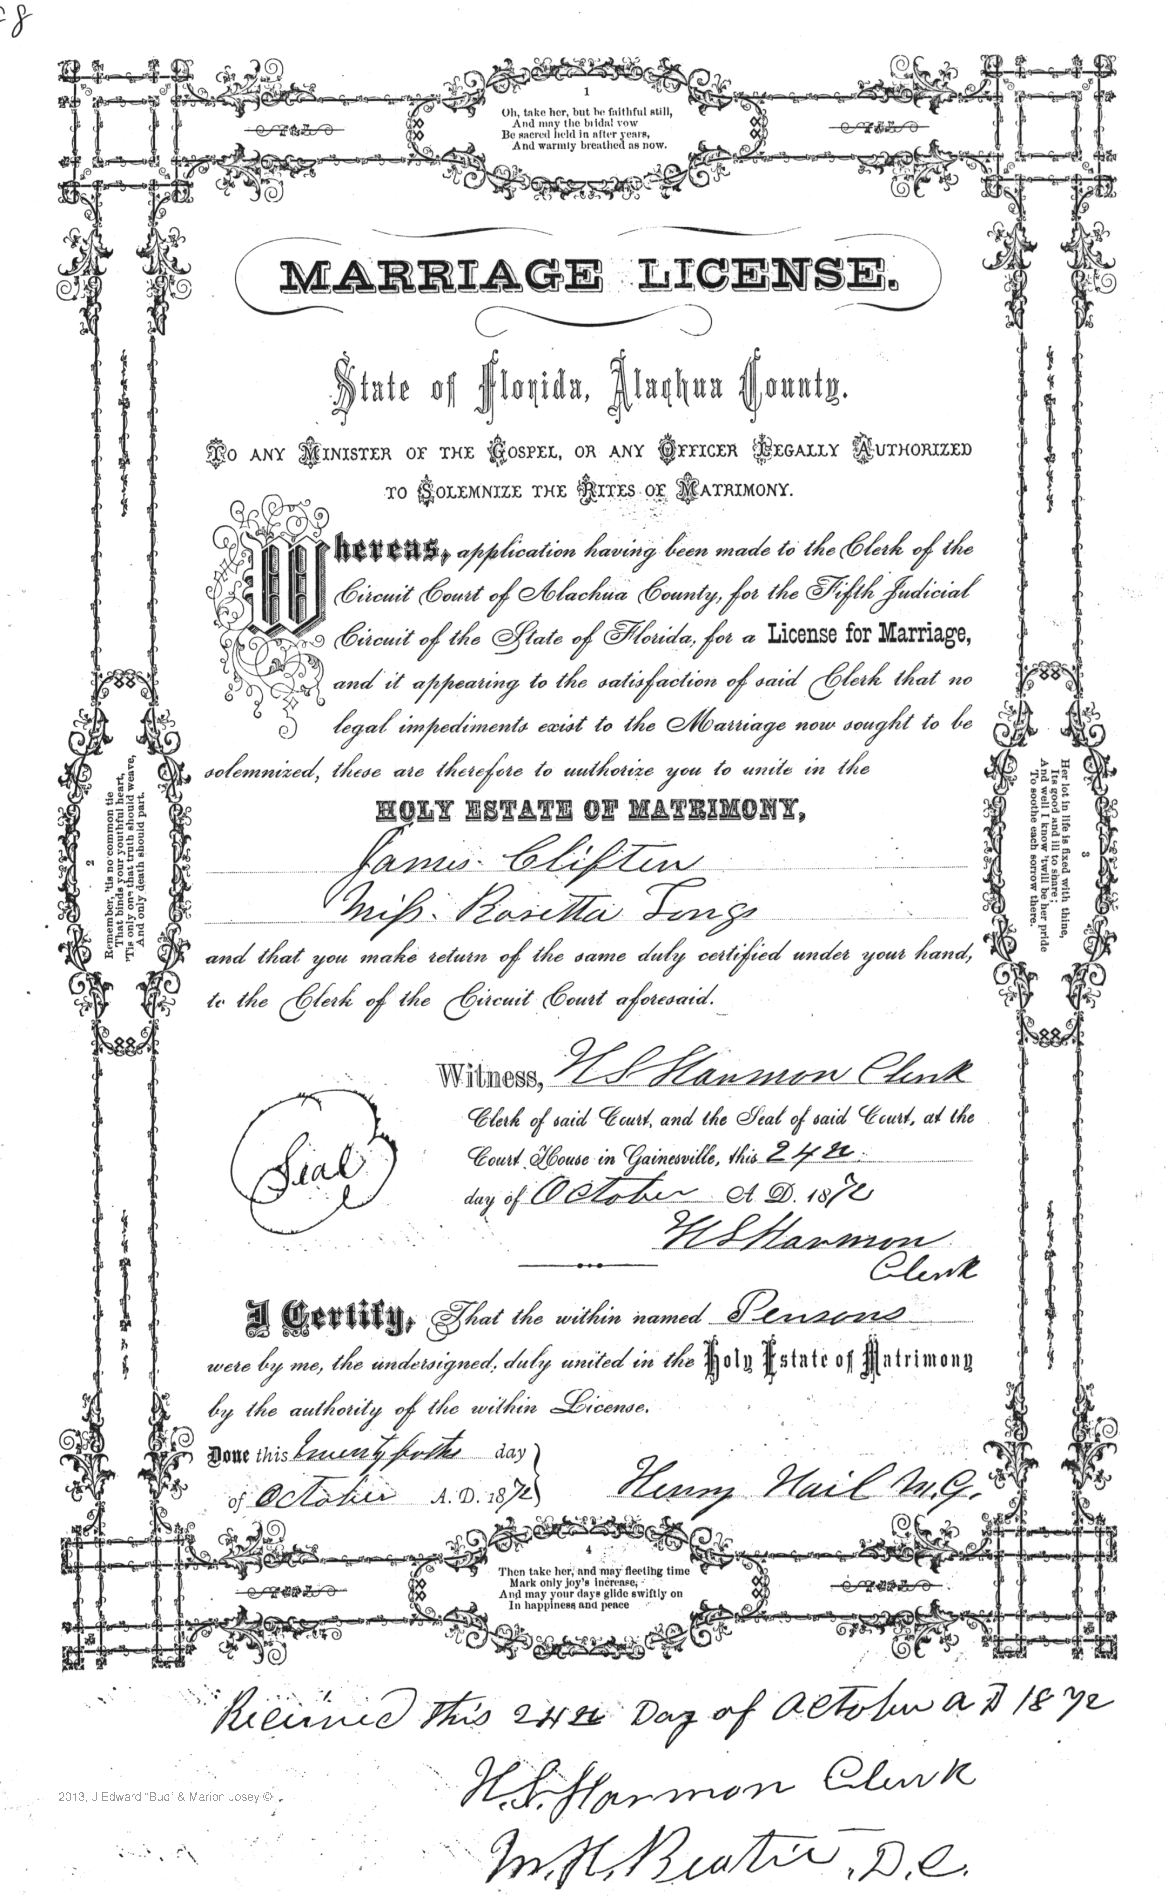 1
Oh, take her, but be faithful still,
And may the bridal vow
Be sacred held in after years,
And warmly breathed as now.
MARRIAGE LICENSE.
State of Florida, Alachua County.
TO ANY MINISTER OF THE GOSPEL, OR ANY OFFICER LEGALLY AUTHORIZED
TO SOLEMNIZE THE RITES OF MATRIMONY.
Whereas, application having been made to the Clerk of the
Circuit Court of Alachua County, for the Fifth Judicial
Circuit of the State of Florida, for a License for Marriage,
and it appearing to the satisfaction of said Clerk that no
legal impediments exist to the Marriage now sought to be
solemnized, these are therefore to authorize you to unite in the
HOLY ESTATE OF MATRIMONY,
James Clifton
Miss. Rosetta Longs
and that you make return of the same duly certified under your hand,
to the Clerk of the Circuit Court aforesaid.
2
Remember, 'tis no common tie
That binds your youthful heart,
'Tis only one that truth should weave,
And only death should part.
3
Her lot in life is fixed with thine,
Its good and ill to share;
And well I know 'twill be her pride
To soothe each sorrow there.
Witness, H S Harmon Clerk
Clerk of said Court, and the Seal of said Court, at the
Court House in Gainesville, this 24th
day of October A D. 1872
Seal
H S Harmon
Clerk
I Certify, That the within named Persons
were by me, the undersigned, duly united in the Holy Estate of Matrimony
by the authority of the within License.
Done this day
of October A. D. 1872
Henry Hail M.G.
4
Then take her, and may fleeting time
Mark only joy's increase,
And may your days glide swiftly on
In happiness and peace
Received this 24th Day of October A D 1872
H. S. Harmon Clerk
M. H. Beatie, D. C.
2013, J Edward "Bud" & Marion Josey ©